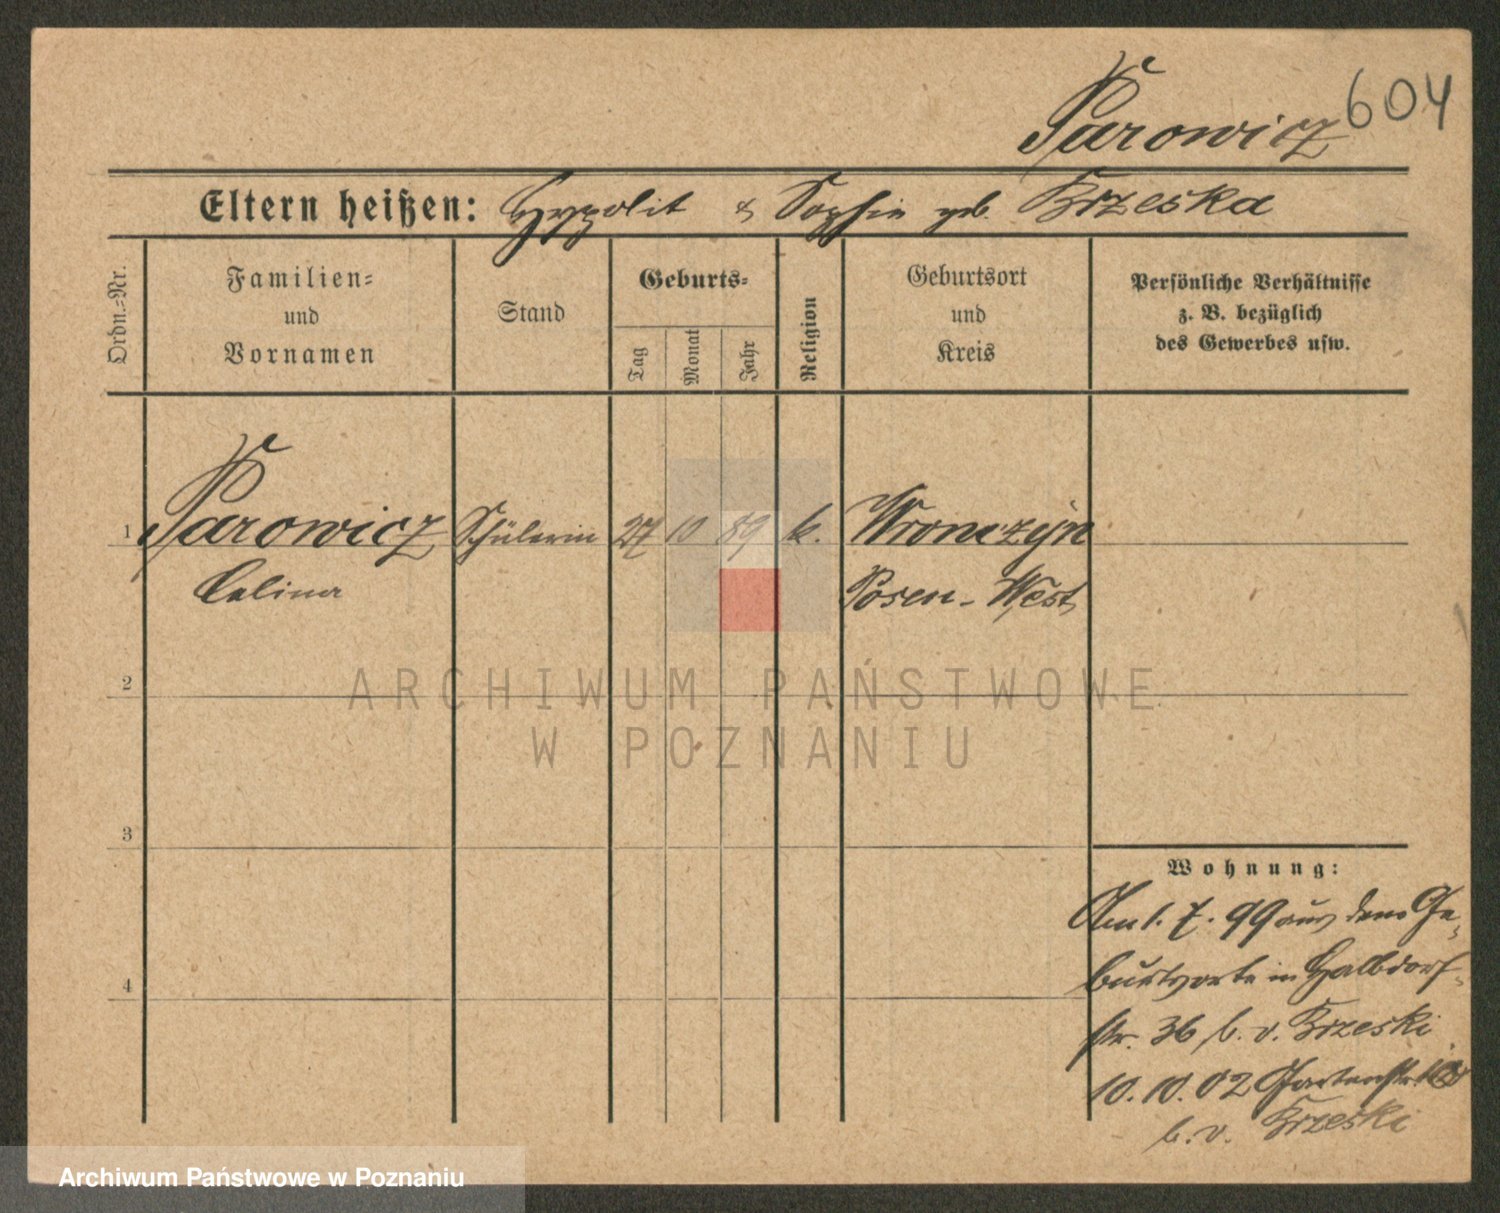 Parowicz 604
Eltern heißen: Hypolit & Sophie geb. Brzeska
Ordn.=Nr.
Familien=
und
Vornamen
Stand
Geburts=
Tag
Monat
Jahr
Religion
Geburtsort
und
Kreis
Persönliche Verhältnisse
z. B. bezüglich
des Gewerbes usw.
1 Parowicz Schülerin 27 10 89 k. Wronczyn
Celina Posen-West
2
ARCHIWUM PAŃSTWOWE
W POZNANIU
3
Wohnung:
Am 1. 7. 99 aus dem Ge-
burtsorte in Halbdorf-
4
str. 36 b. v. Brzeski
10. 10. 02 Gartenstr.
b. v. Brzeski
Archiwum Państwowe w Poznaniu